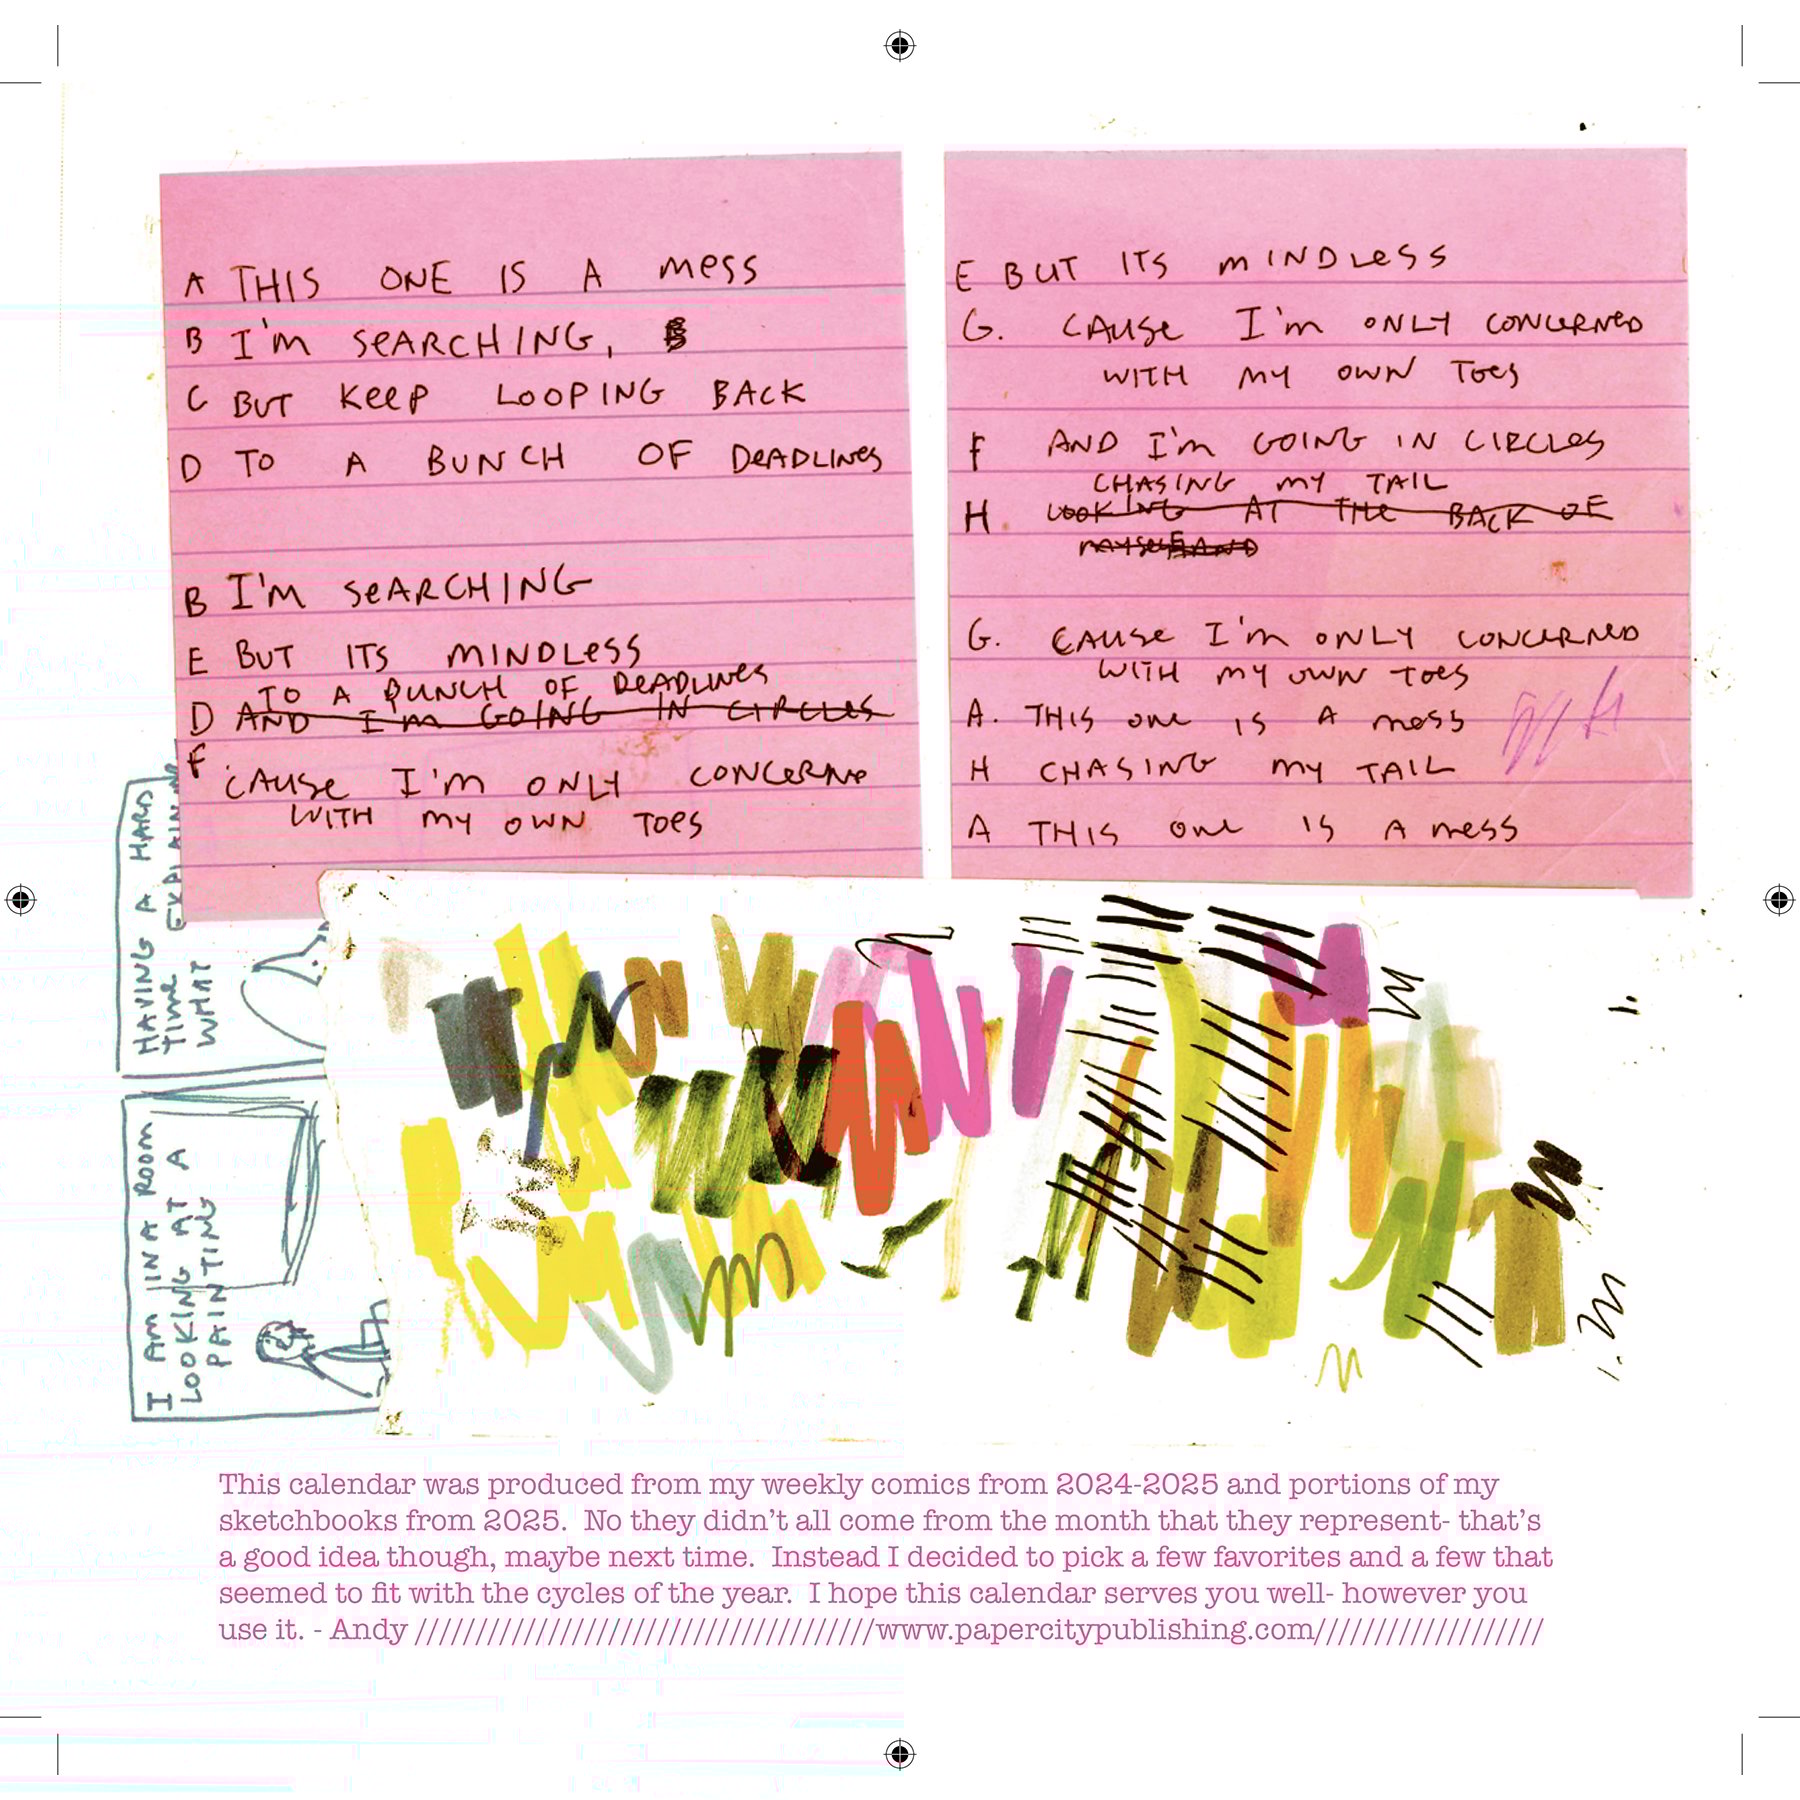 A THIS ONE IS A MESS
B I'M SEARCHING,
C BUT KEEP LOOPING BACK
D TO A BUNCH OF DEADLINES
B I'M SEARCHING
E BUT ITS MINDLESS
TO A BUNCH OF DEADLINES
D AND I'M GOING IN CIRCLES
F 'CAUSE I'M ONLY CONCERNE
WITH MY OWN TOES
E BUT ITS MINDLESS
G. CAUSE I'M ONLY CONCERNED
WITH MY OWN TOES
F AND I'M GOING IN CIRCLES
CHASING MY TAIL
H LOOKING AT THE BACK OF
G. CAUSE I'M ONLY CONCERNED
WITH MY OWN TOES
A. THIS ONE IS A MESS
H CHASING MY TAIL
A THIS ONE IS A MESS
HAVING A HARD
TIME EXPLAINING
WHAT
I AM IN A ROOM
LOOKING AT A
PAINTING
This calendar was produced from my weekly comics from 2024-2025 and portions of my
sketchbooks from 2025.  No they didn't all come from the month that they represent- that's
a good idea though, maybe next time.  Instead I decided to pick a few favorites and a few that
seemed to fit with the cycles of the year.  I hope this calendar serves you well- however you
use it. - Andy //////////////////////////////////////www.papercitypublishing.com///////////////////